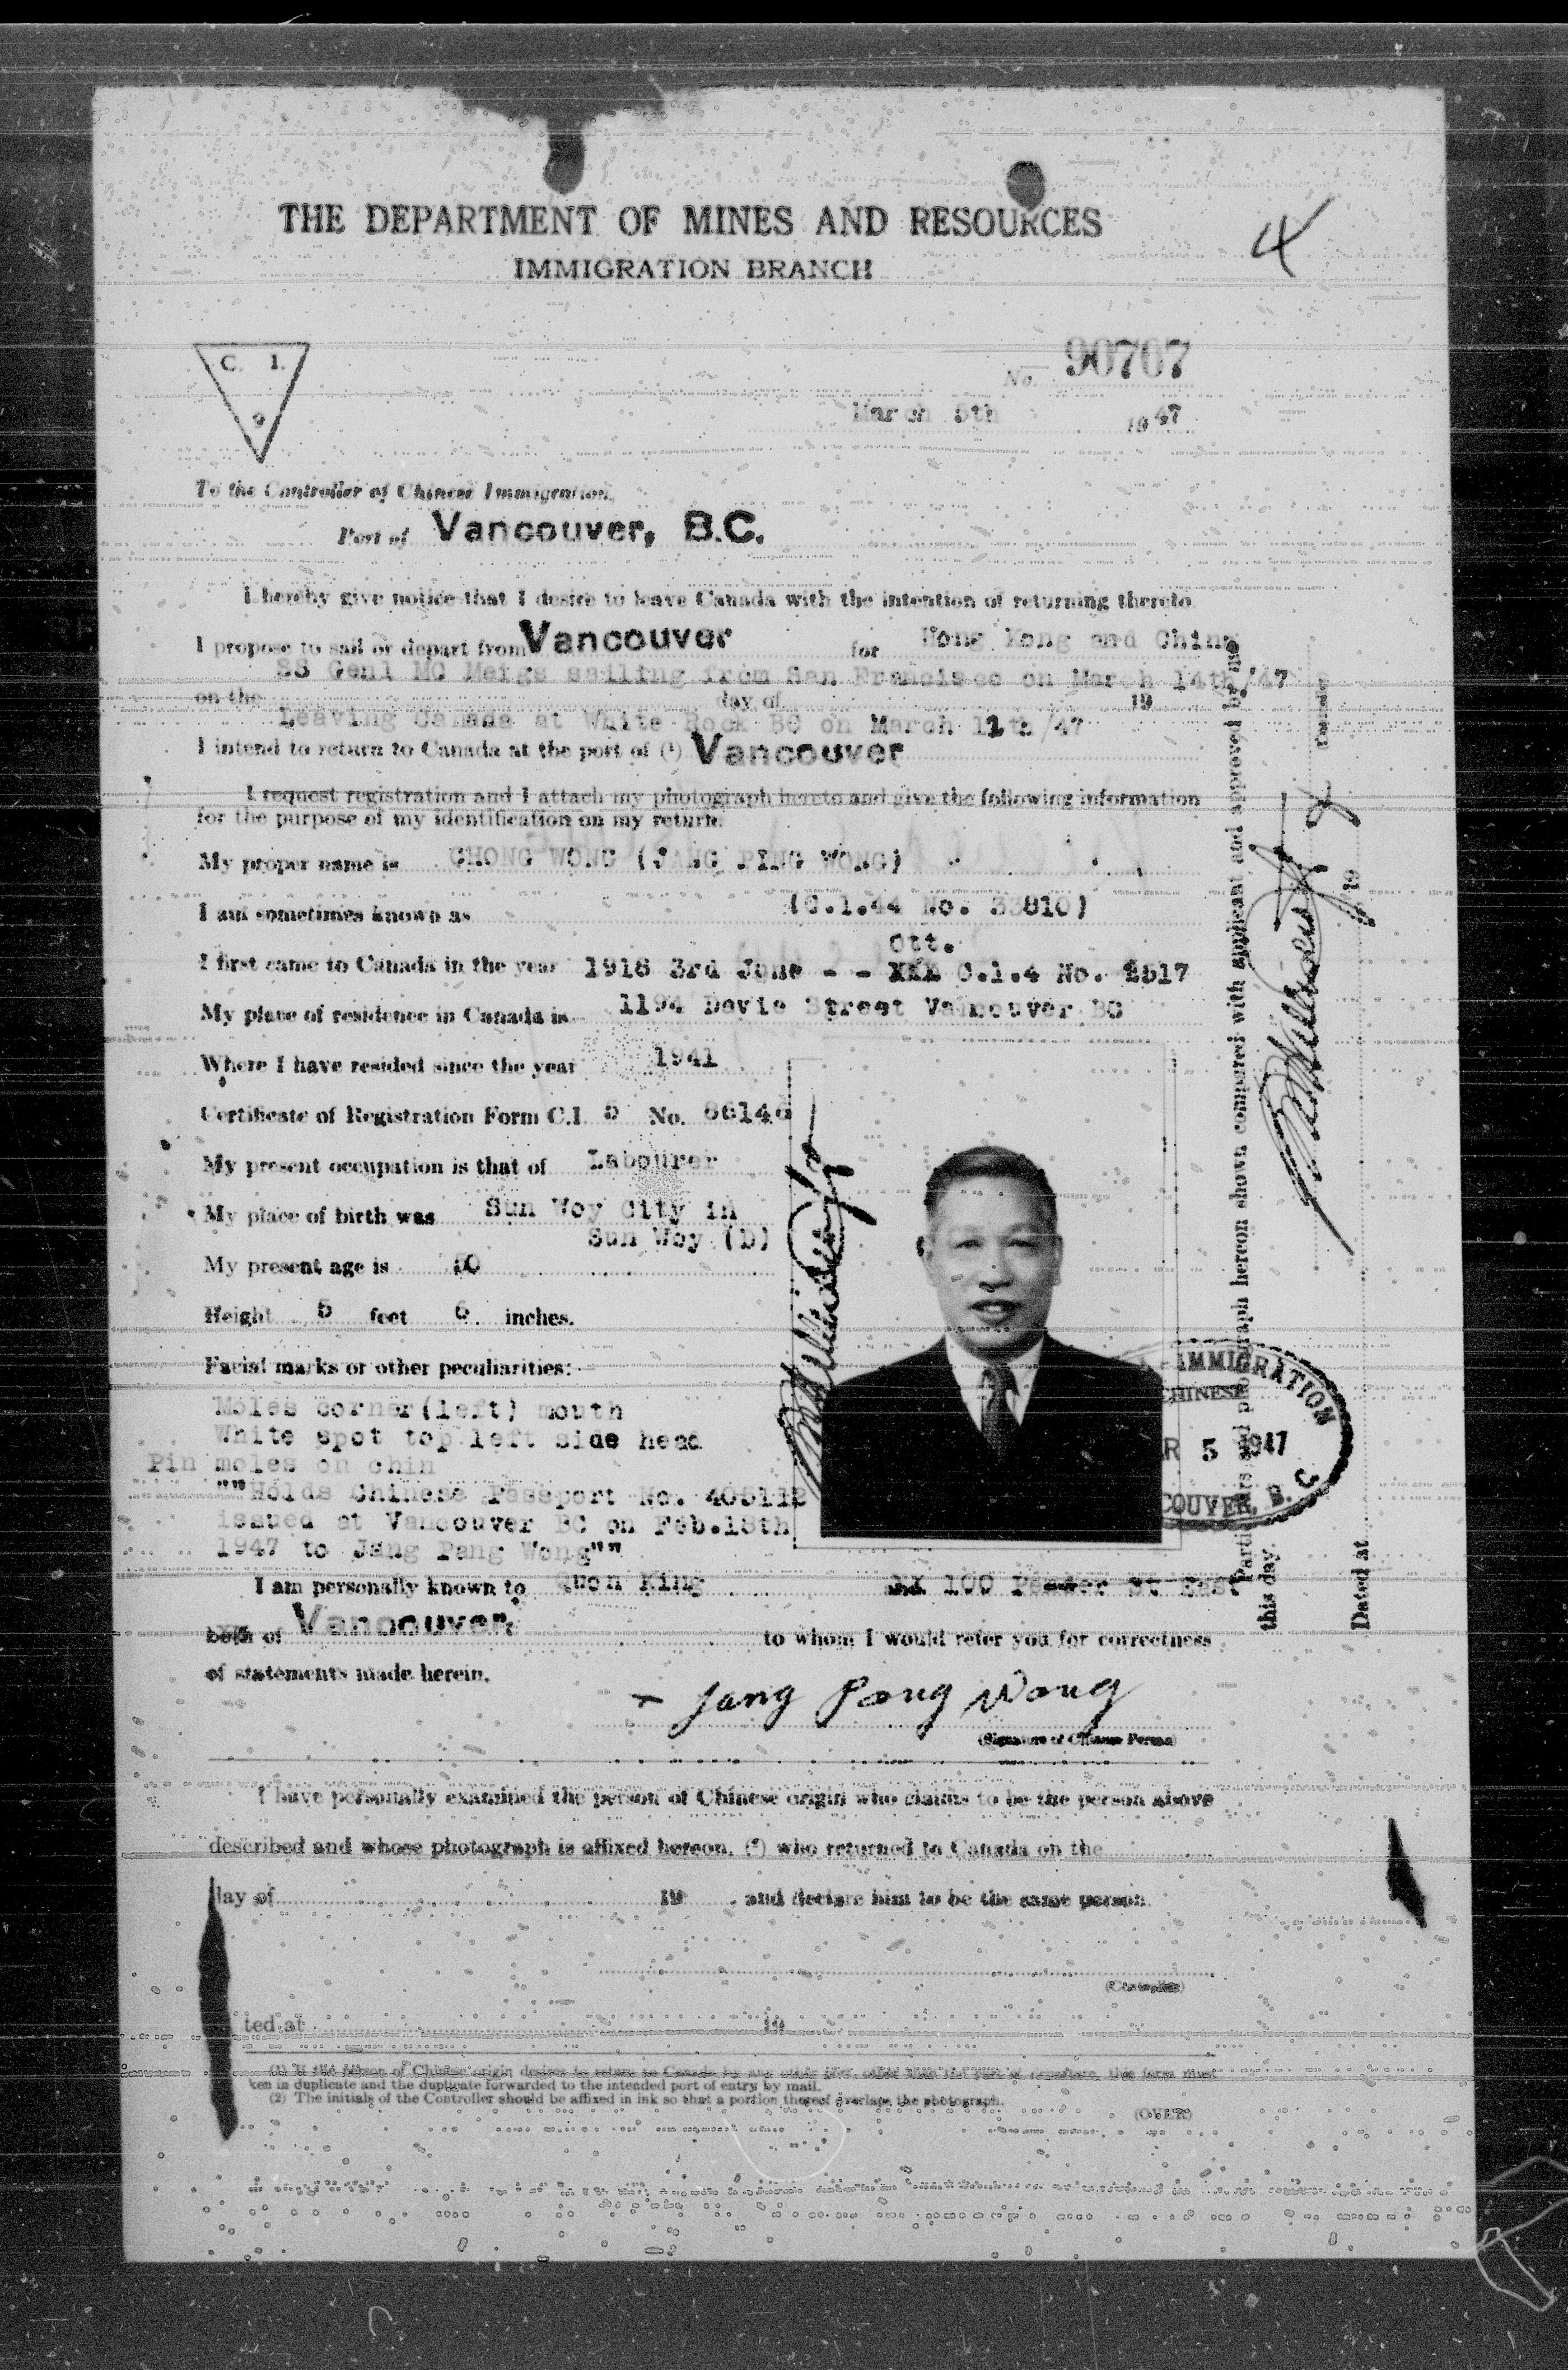 THE DEPARTMENT OF MINES AND RESOURCES
IMMIGRATION BRANCH
4
C. I.
9
No. 90707
March 5th 1947
To the Controller of Chinese Immigration,
Port of Vancouver, B.C.
I hereby give notice that I desire to leave Canada with the intention of returning thereto.
I propose to sail or depart from Vancouver for Hong Kong and China
SS Genl MC Meigs sailing from San Francisco on March 14th/47
on the day of 19
Leaving Canada at White Rock BC on March 11th/47
I intend to return to Canada at the port of (1) Vancouver
I request registration and I attach my photograph hereto and give the following information
for the purpose of my identification on my return.
My proper name is CHONG WONG (JANG PING WONG)
I am sometimes known as (C.1.44 No. 33810)
Ott.
I first came to Canada in the year 1918 3rd June - - XXX C.1.4 No. 2517
My place of residence in Canada is 1194 Davie Street Vancouver BC
Where I have resided since the year 1941
Certificate of Registration Form C.I. 5 No. 86146
My present occupation is that of Labourer
My place of birth was Sun Woy City in
Sun Woy (D)
My present age is 50
Height 5 feet 6 inches.
Facial marks or other peculiarities:
Moles corner(left) mouth
White spot top left side head
Pin moles on chin
""Holds Chinese Passport No. 405112
issued at Vancouver BC on Feb.18th
1947 to Jang Pang Wong""
I am personally known to Quon King 100 Pender St East
both of Vancouver to whom I would refer you for correctness
of statements made herein.
Jang Pang Wong
(Signature of Chinese Person)
I have personally examined the person of Chinese origin who claims to be the person above
described and whose photograph is affixed hereon, (2) who returned to Canada on the
day of 19 and declare him to be the same person.
(Controller)
ted at 19
(1) If the person of Chinese origin desires to return to Canada by any other port, other than the port of departure, this form must
ken in duplicate and the duplicate forwarded to the intended port of entry by mail.
(2) The initials of the Controller should be affixed in ink so that a portion thereof overlaps the photograph.
(OVER)
IMMIGRATION
CHINESE
R 5 1947
COUVER, B. C.
Particulars and photograph hereon shown compared with applicant and approved by me
this day.
Dated at 19